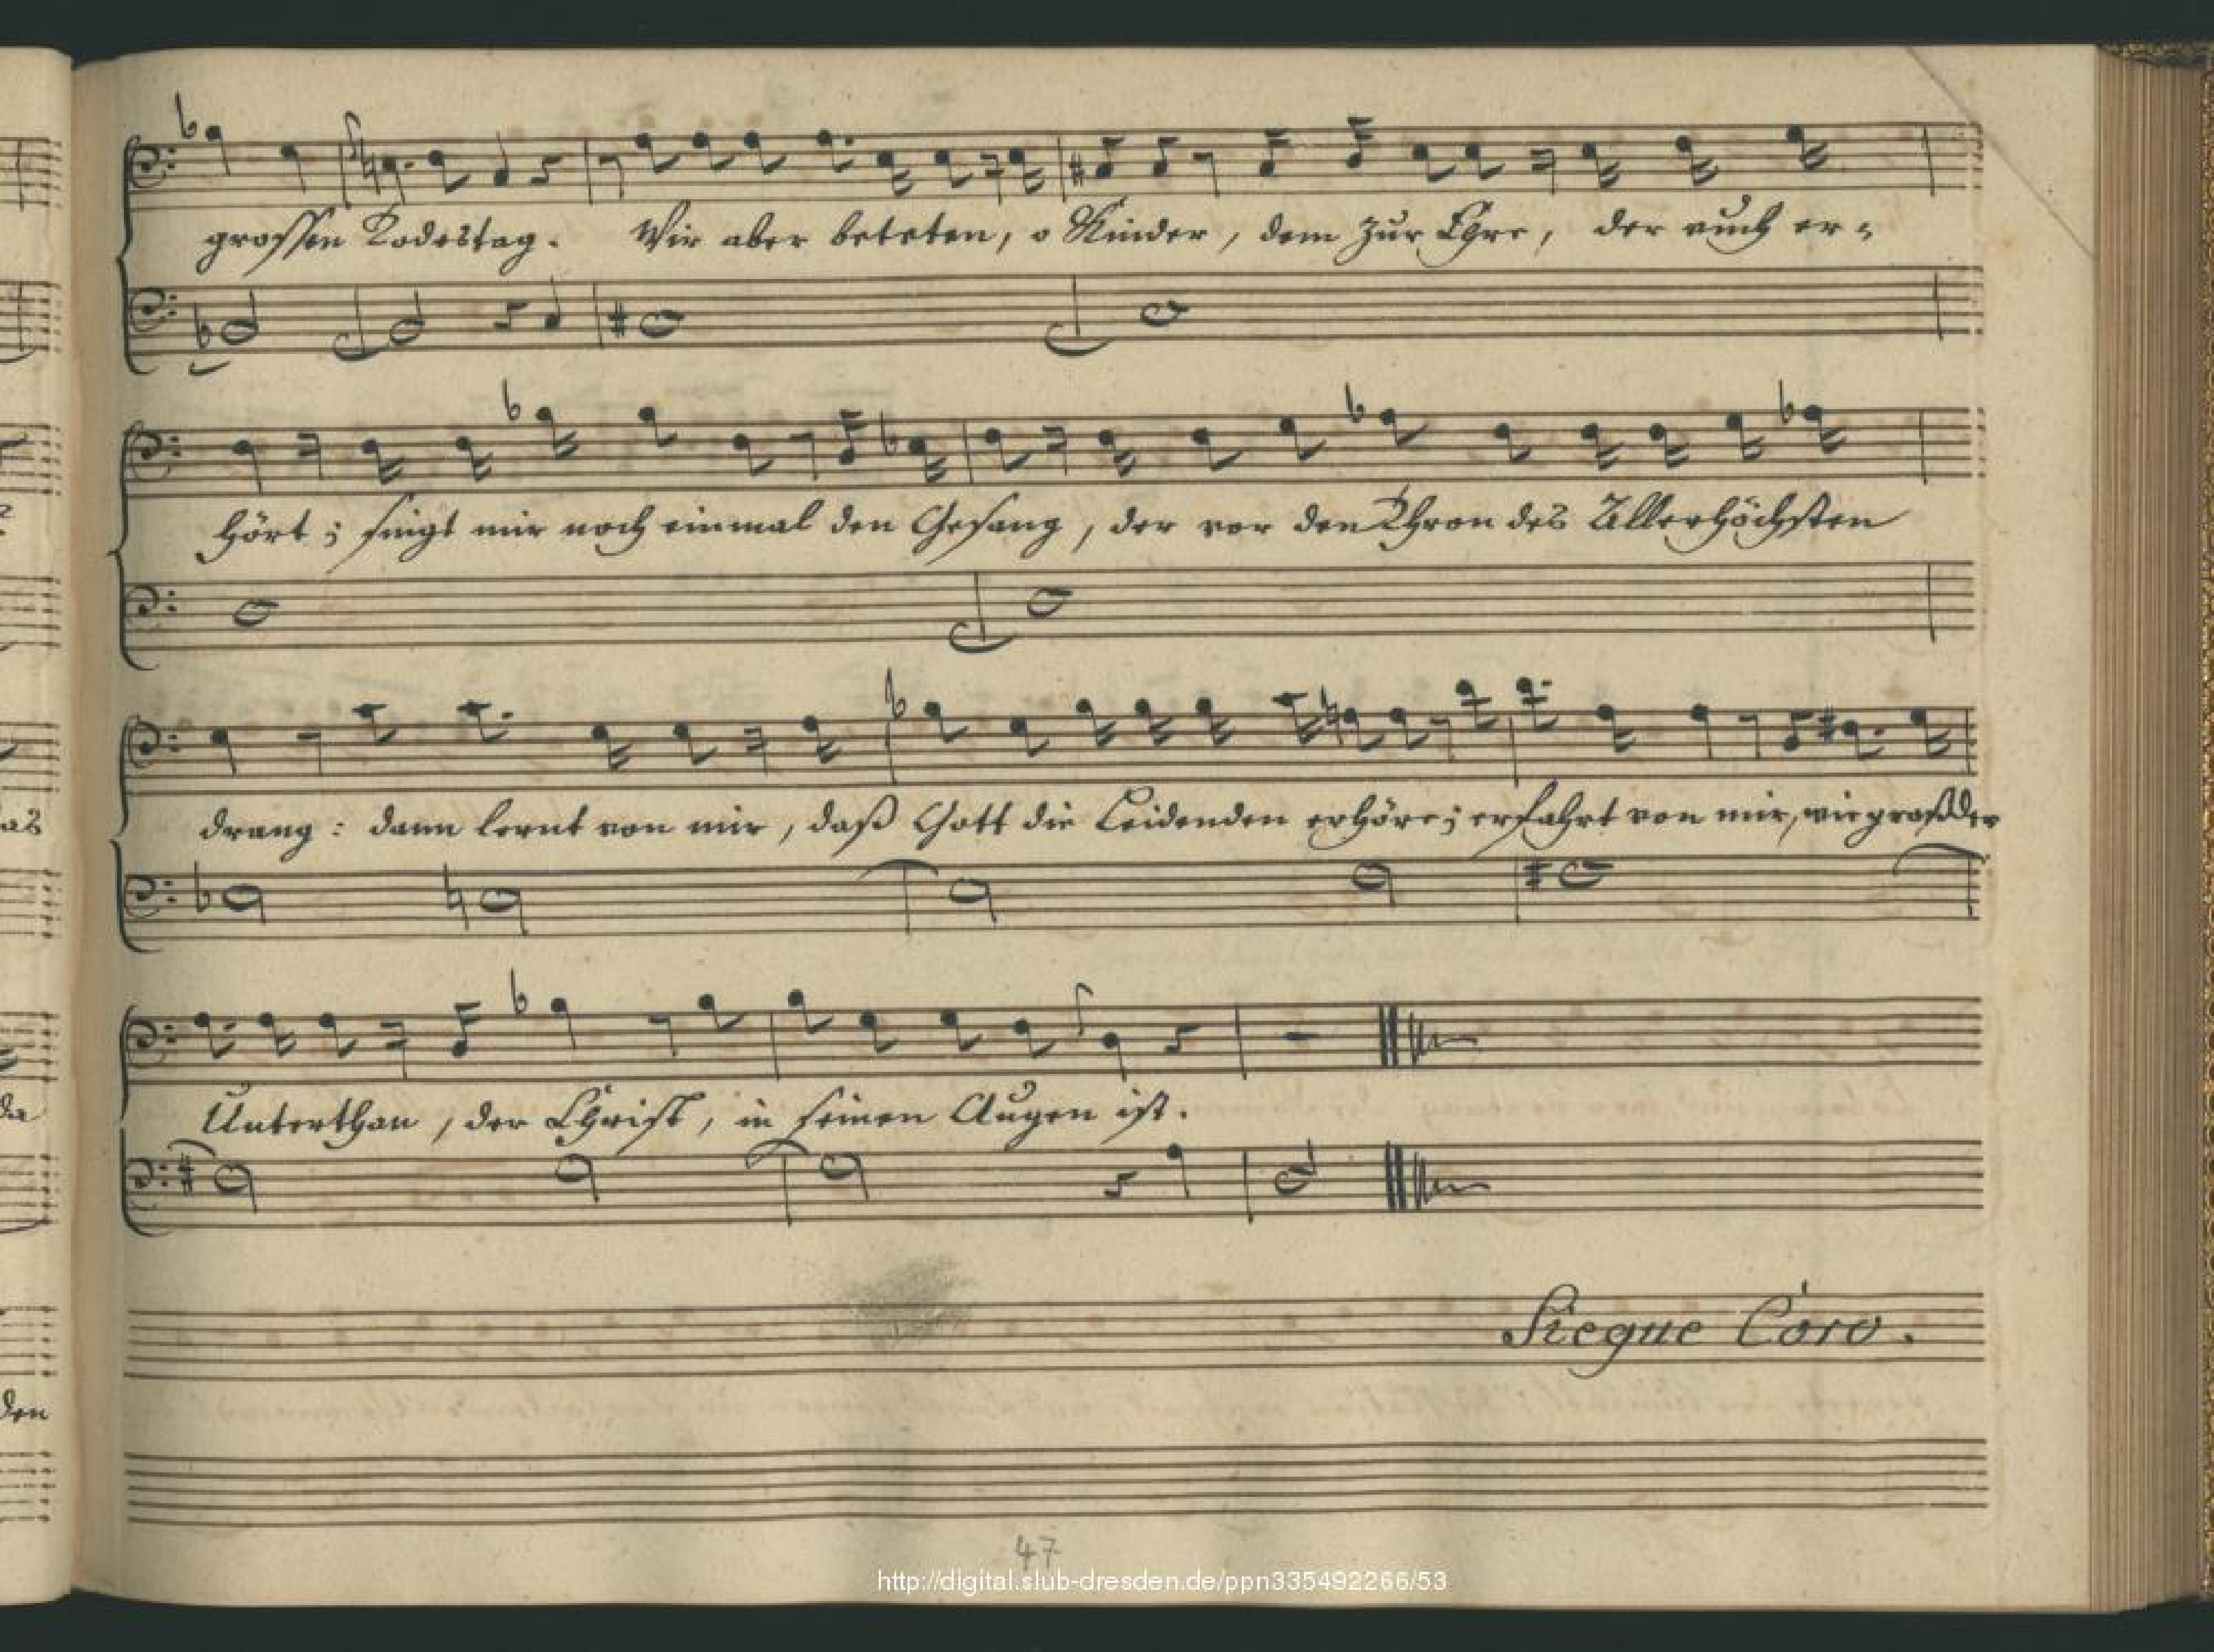 grossen Todestag. Wir aber beteten, o Kinder, dem zur Ehre, der auch er-
hört; singt mir noch einmal den Gesang, der vor den Thron des Allerhöchsten
drang: dann lernt von mir, daß Gott die Leidenden erhöre; erfahrt von mir, wie groß der
Unterthan, der Christ, in seinen Augen ist.
Siegue Coro.
47
http://digital.slub-dresden.de/ppn335492266/53